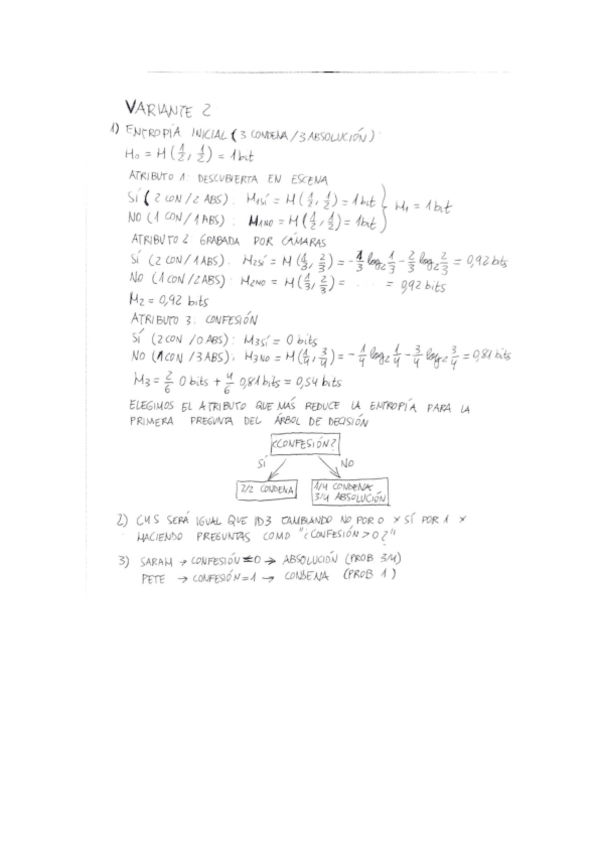 VARIANTE 2
1) ENTROPÍA INICIAL (3 CONDENA / 3 ABSOLUCIÓN)
H₀ = H(1/2, 1/2) = 1 bit
ATRIBUTO 1: DESCUBIERTA EN ESCENA
SÍ (2 CON / 2 ABS): H1SÍ = H(1/2, 1/2) = 1 bit } H₁ = 1 bit
NO (1 CON / 1 ABS): H1NO = H(1/2, 1/2) = 1 bit
ATRIBUTO 2 GRABADA POR CÁMARAS
SÍ (2 CON / 1 ABS). H2SÍ = H(1/3, 2/3) = -1/3 log₂ 1/3 - 2/3 log₂ 2/3 = 0,92 bits
NO (1 CON / 2 ABS): H2NO = H(1/3, 2/3) = .... = 0,92 bits
H2 = 0,92 bits
ATRIBUTO 3: CONFESIÓN
SÍ (2 CON / 0 ABS): H3SÍ = 0 bits
NO (1 CON / 3 ABS): H3NO = H(1/4, 3/4) = -1/4 log₂ 1/4 - 3/4 log₂ 3/4 = 0,81 bits
H3 = 2/6 0 bits + 4/6 0,81 bits = 0,54 bits
ELEGIMOS EL ATRIBUTO QUE MÁS REDUCE LA ENTROPÍA PARA LA
PRIMERA PREGUNTA DEL ÁRBOL DE DECISIÓN
¿CONFESIÓN?
SÍ NO
2/2 CONDENA
1/4 CONDENA
3/4 ABSOLUCIÓN
2) C4.5 SERÁ IGUAL QUE ID3 CAMBIANDO NO POR 0 Y SÍ POR 1 Y
HACIENDO PREGUNTAS COMO "¿CONFESIÓN > 0?"
3) SARAH → CONFESIÓN = 0 → ABSOLUCIÓN (PROB 3/4)
PETE → CONFESIÓN = 1 → CONDENA (PROB 1)